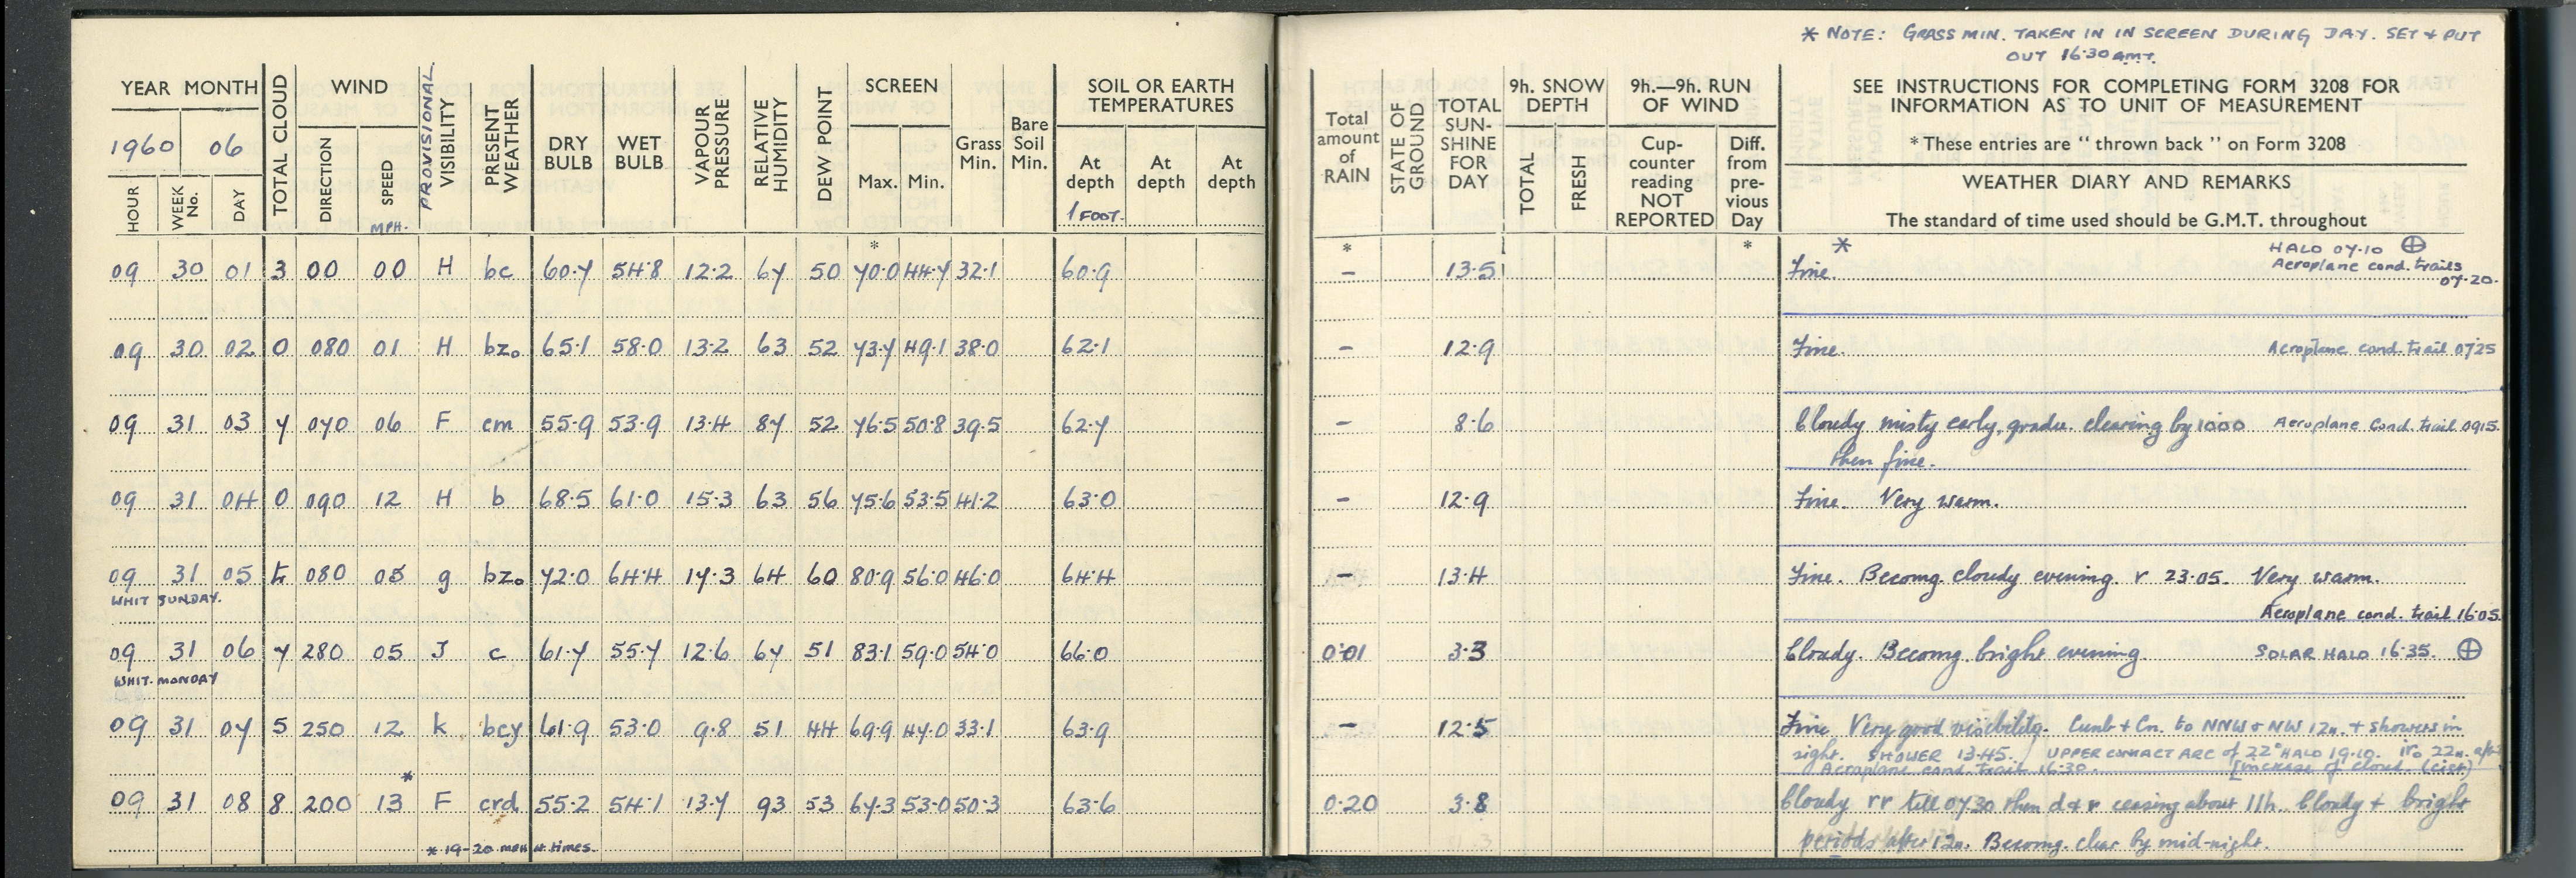 * NOTE: GRASS MIN. TAKEN IN IN SCREEN DURING DAY. SET & PUT
OUT 16·30 GMT.
YEAR MONTH TOTAL CLOUD WIND PROVISIONAL VISIBILITY PRESENT WEATHER DRY BULB WET BULB VAPOUR PRESSURE RELATIVE HUMIDITY DEW POINT SCREEN Grass Min. Bare Soil Min. SOIL OR EARTH TEMPERATURES
1960 06
HOUR WEEK No. DAY DIRECTION SPEED MPH. Max. Min. At depth 1 FOOT. At depth At depth
Total amount of RAIN STATE OF GROUND TOTAL SUN-SHINE FOR DAY 9h. SNOW DEPTH TOTAL FRESH 9h.—9h. RUN OF WIND Cup-counter reading NOT REPORTED Diff. from pre-vious Day
SEE INSTRUCTIONS FOR COMPLETING FORM 3208 FOR
INFORMATION AS TO UNIT OF MEASUREMENT
* These entries are "thrown back" on Form 3208
WEATHER DIARY AND REMARKS
The standard of time used should be G.M.T. throughout
* * * *
HALO 07·10 ⊕
09 30 01 3 00 00 H bc 60·7 54·8 12·2 67 50 70·0 44·7 32·1 60·9 – 13·5 Fine. Aeroplane cond. trails
07·20.
09 30 02 0 080 01 H bz₀ 65·1 58·0 13·2 63 52 73·7 49·1 38·0 62·1 – 12·9 Fine. Aeroplane cond. trail 0725
09 31 03 7 070 06 F cm 55·9 53·9 13·4 87 52 76·5 50·8 39·5 62·7 – 8·6 Cloudy misty early, gradu. clearing by 1000 Aeroplane Cond. trail 0915.
then fine.
09 31 04 0 090 12 H b 68·5 61·0 15·3 63 56 75·6 53·5 41·2 63·0 – 12·9 Fine. Very warm.
09 31 05 080 05 g bz₀ 72·0 64·4 17·3 64 60 80·9 56·0 46·0 64·4 – 13·4 Fine. Becomg. cloudy evening. r 23·05. Very warm.
WHIT SUNDAY. Aeroplane cond. trail 16·05.
09 31 06 7 280 05 J c 61·7 55·7 12·6 67 51 83·1 59·0 54·0 66·0 0·01 3·3 Cloudy. Becomg. bright evening. SOLAR HALO 16·35. ⊕
WHIT. MONDAY
09 31 07 5 250 12 k bcy 61·9 53·0 9·8 51 44 69·9 47·0 33·1 63·9 – 12·5 Fine. Very good visibility. Cumb + Cn. to NNW & NW 12n. + showers in
sight. SHOWER 13·45. UPPER CONTACT ARC of 22° HALO 19·10. ir₀ 22n.
* Aeroplane cond. trail 16·30. [increase of cloud (cist)
09 31 08 8 200 13 F crd 55·2 54·1 13·7 93 53 67·3 53·0 50·3 63·6 0·20 3·8 Cloudy rr till 0730 then d & r ceasing about 11h. Cloudy + bright
* 19-20 MPH at times. periods after 12n. Becomg. clear by mid-night.